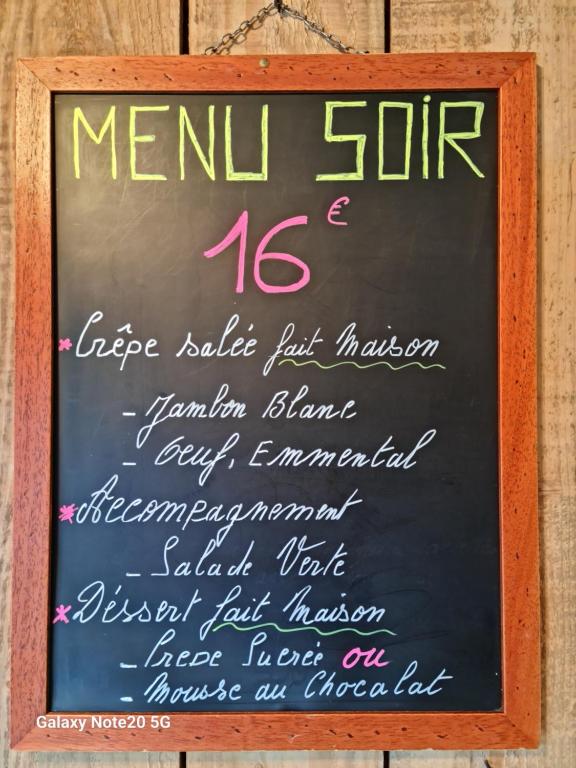 MENU SOIR
16 €
* Crêpe salée fait Maison
- Jambon Blanc
- Oeuf, Emmental
* Accompagnement
- Salade Verte
* Déssert fait Maison
- Crepe Sucrée ou
- Mousse au Chocalat
Galaxy Note20 5G